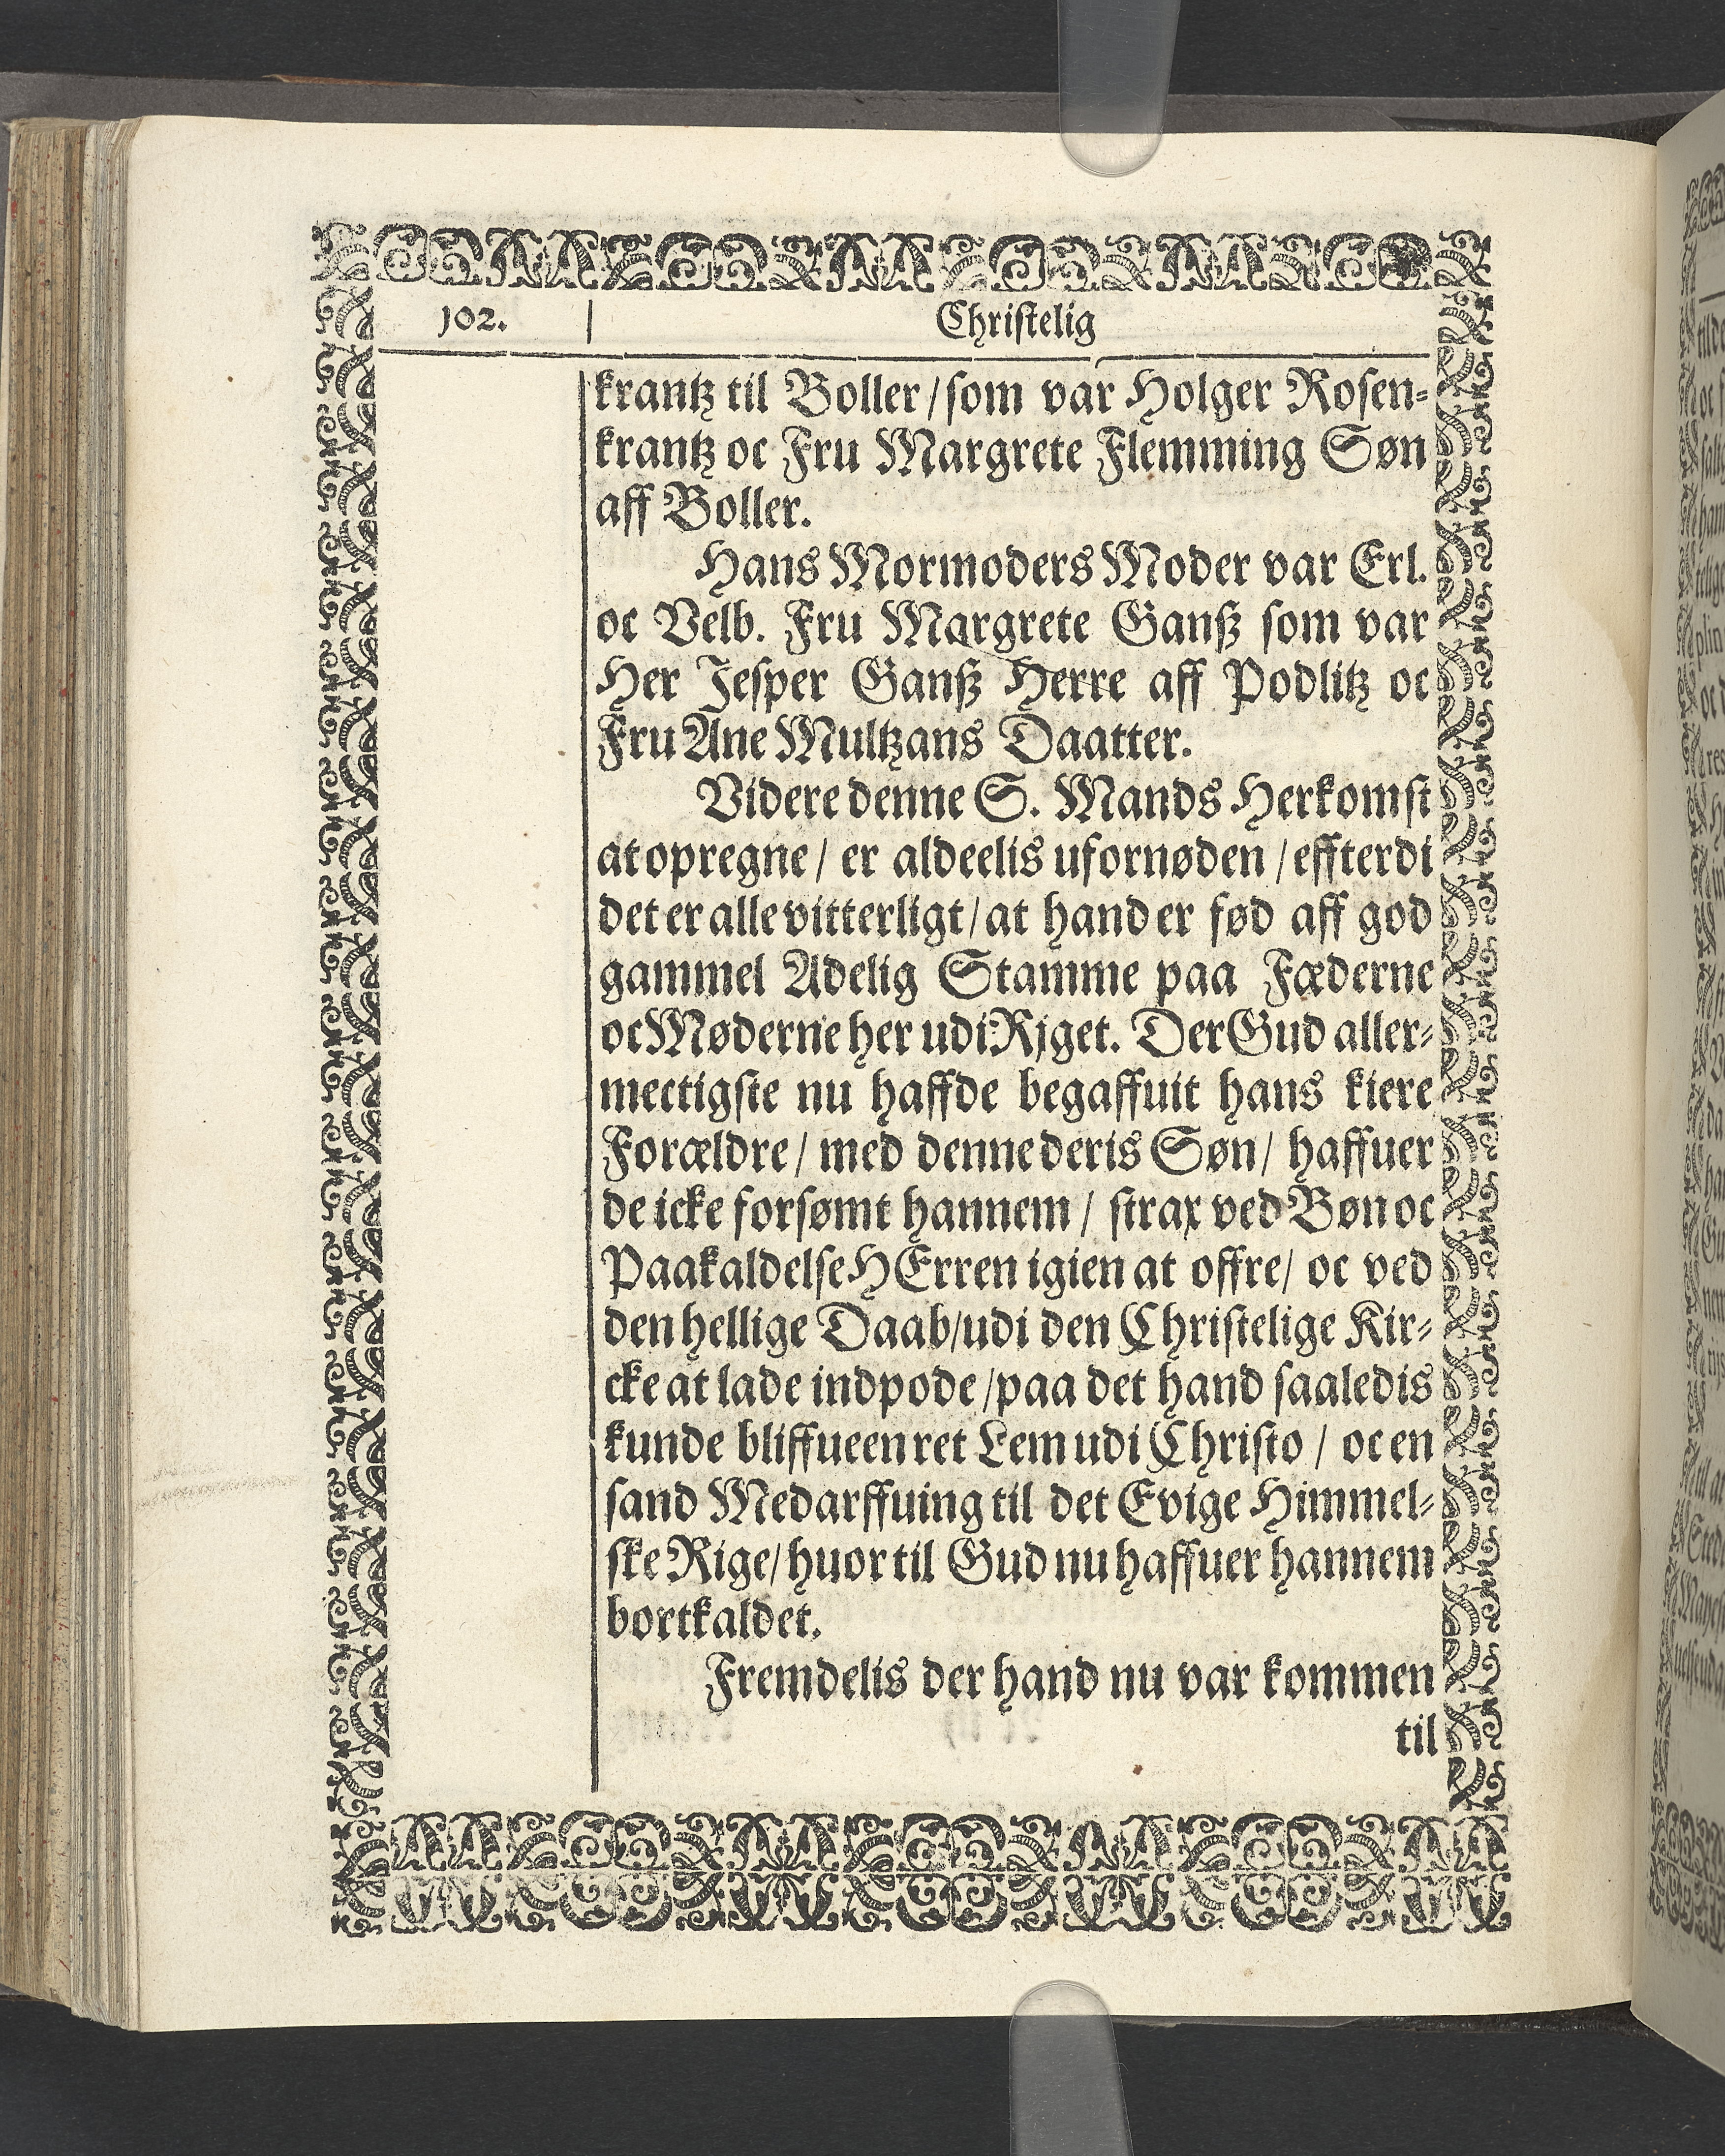 102.
Christelig
krantz til Boller / som var Holger Rosen-
krantz oc Fru Margrete Flemming Søn
aff Boller.
Hans Mormoders Moder var Erl.
oc Velb. Fru Margrete Ganß som var
Her Jesper Ganß Herre aff Podlitz oc
Fru Ane Multzans Daatter.
Videre denne S. Mands Herkomst
at opregne / er aldeelis ufornøden / effterdi
det er alle vitterligt / at hand er fød aff god
gammel Adelig Stamme paa Fæderne
oc Møderne her udi Rjget. Der Gud aller-
mectigste nu haffde begaffuit hans kiere
Forældre / med denne deris Søn / haffuer
de icke forsømt hannem / strax ved Bøn oc
Paakaldelse HErren igien at offre / oc ved
den hellige Daab / udi den Christelige Kir-
cke at lade indpode / paa det hand saaledis
kunde bliffue en ret Lem udi Christo / oc en
sand Medarffuing til det Evige Himmel-
ske Rige / huor til Gud nu haffuer hannem
bortkaldet.
Fremdelis der hand nu var kommen
til